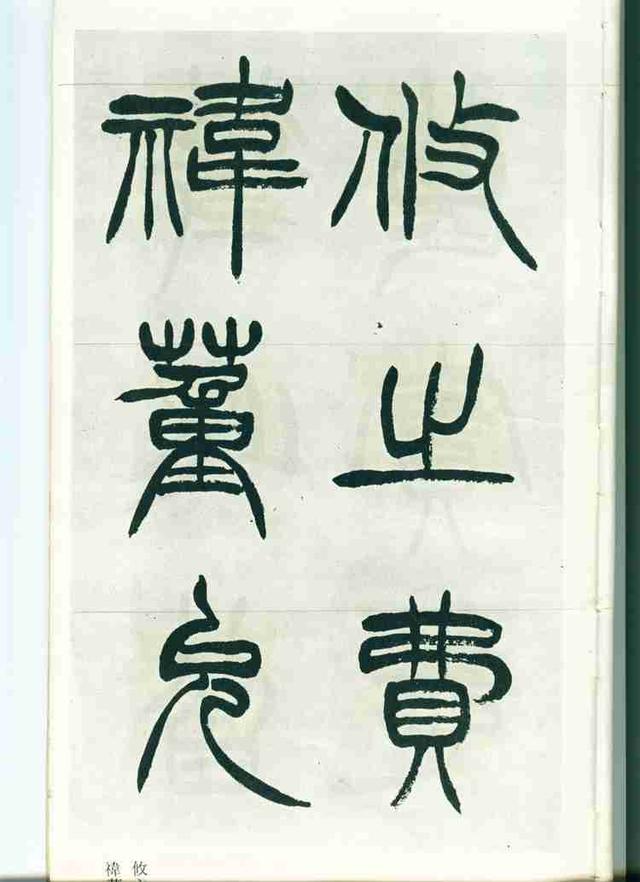 攸之費
禕董允
攸
禕